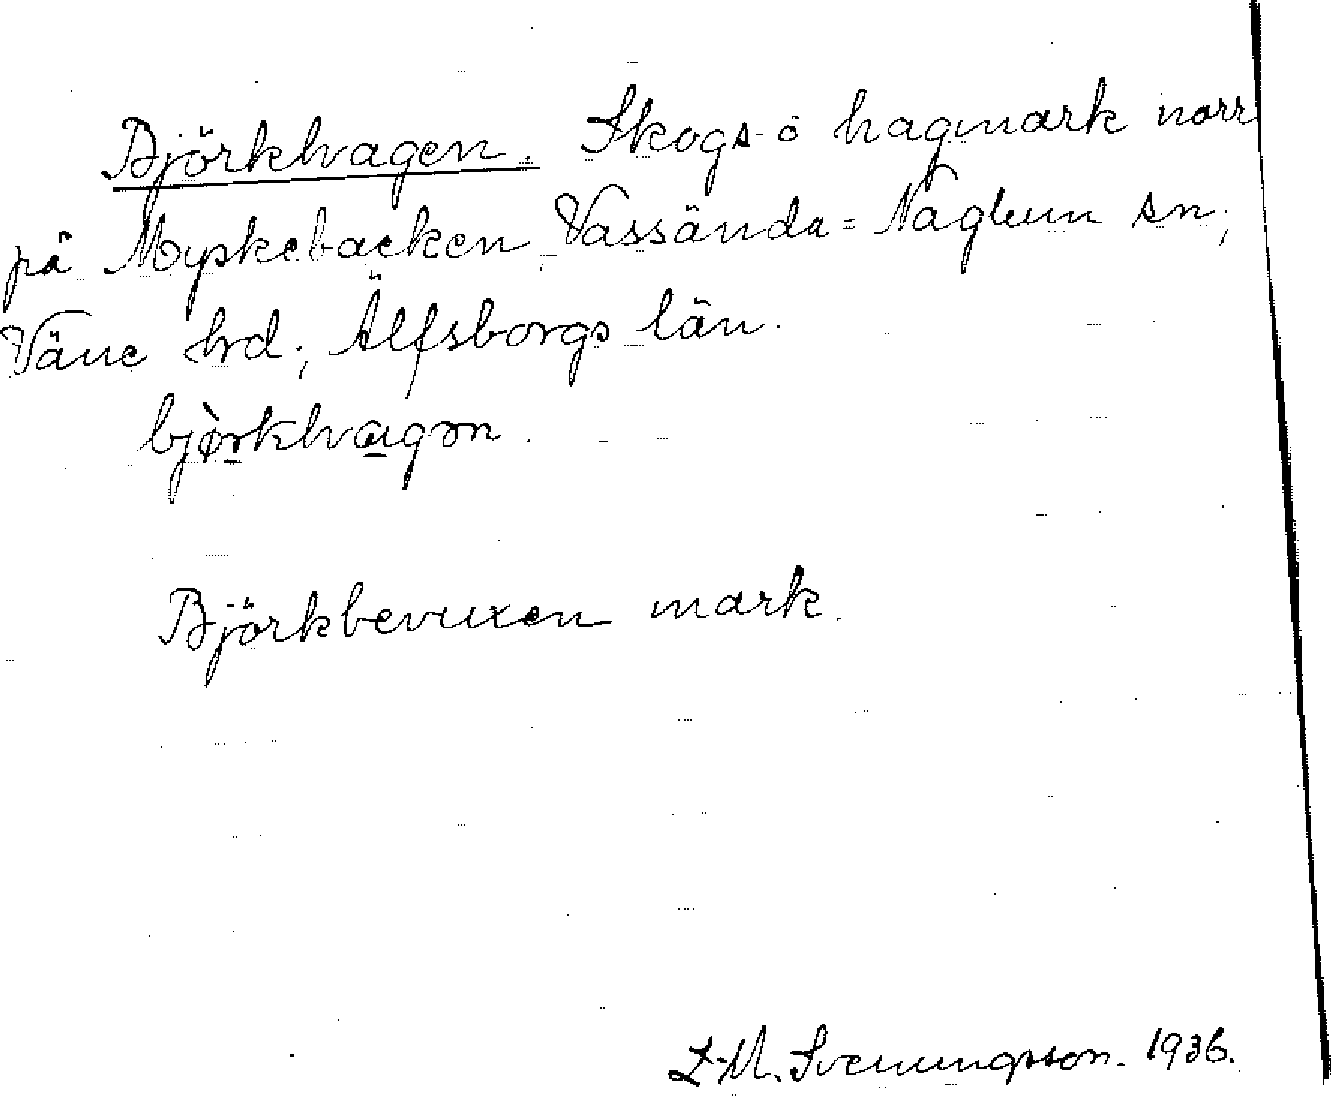 Björkhagen. Skogs- o hagmark norr
på Myskebacken, Vassända=Naglum sn;
Väne hrd; Älfsborgs län.
bjö̀rkhagən.
Björkbevuxen mark.
L-M. Svenungsson. 1936.